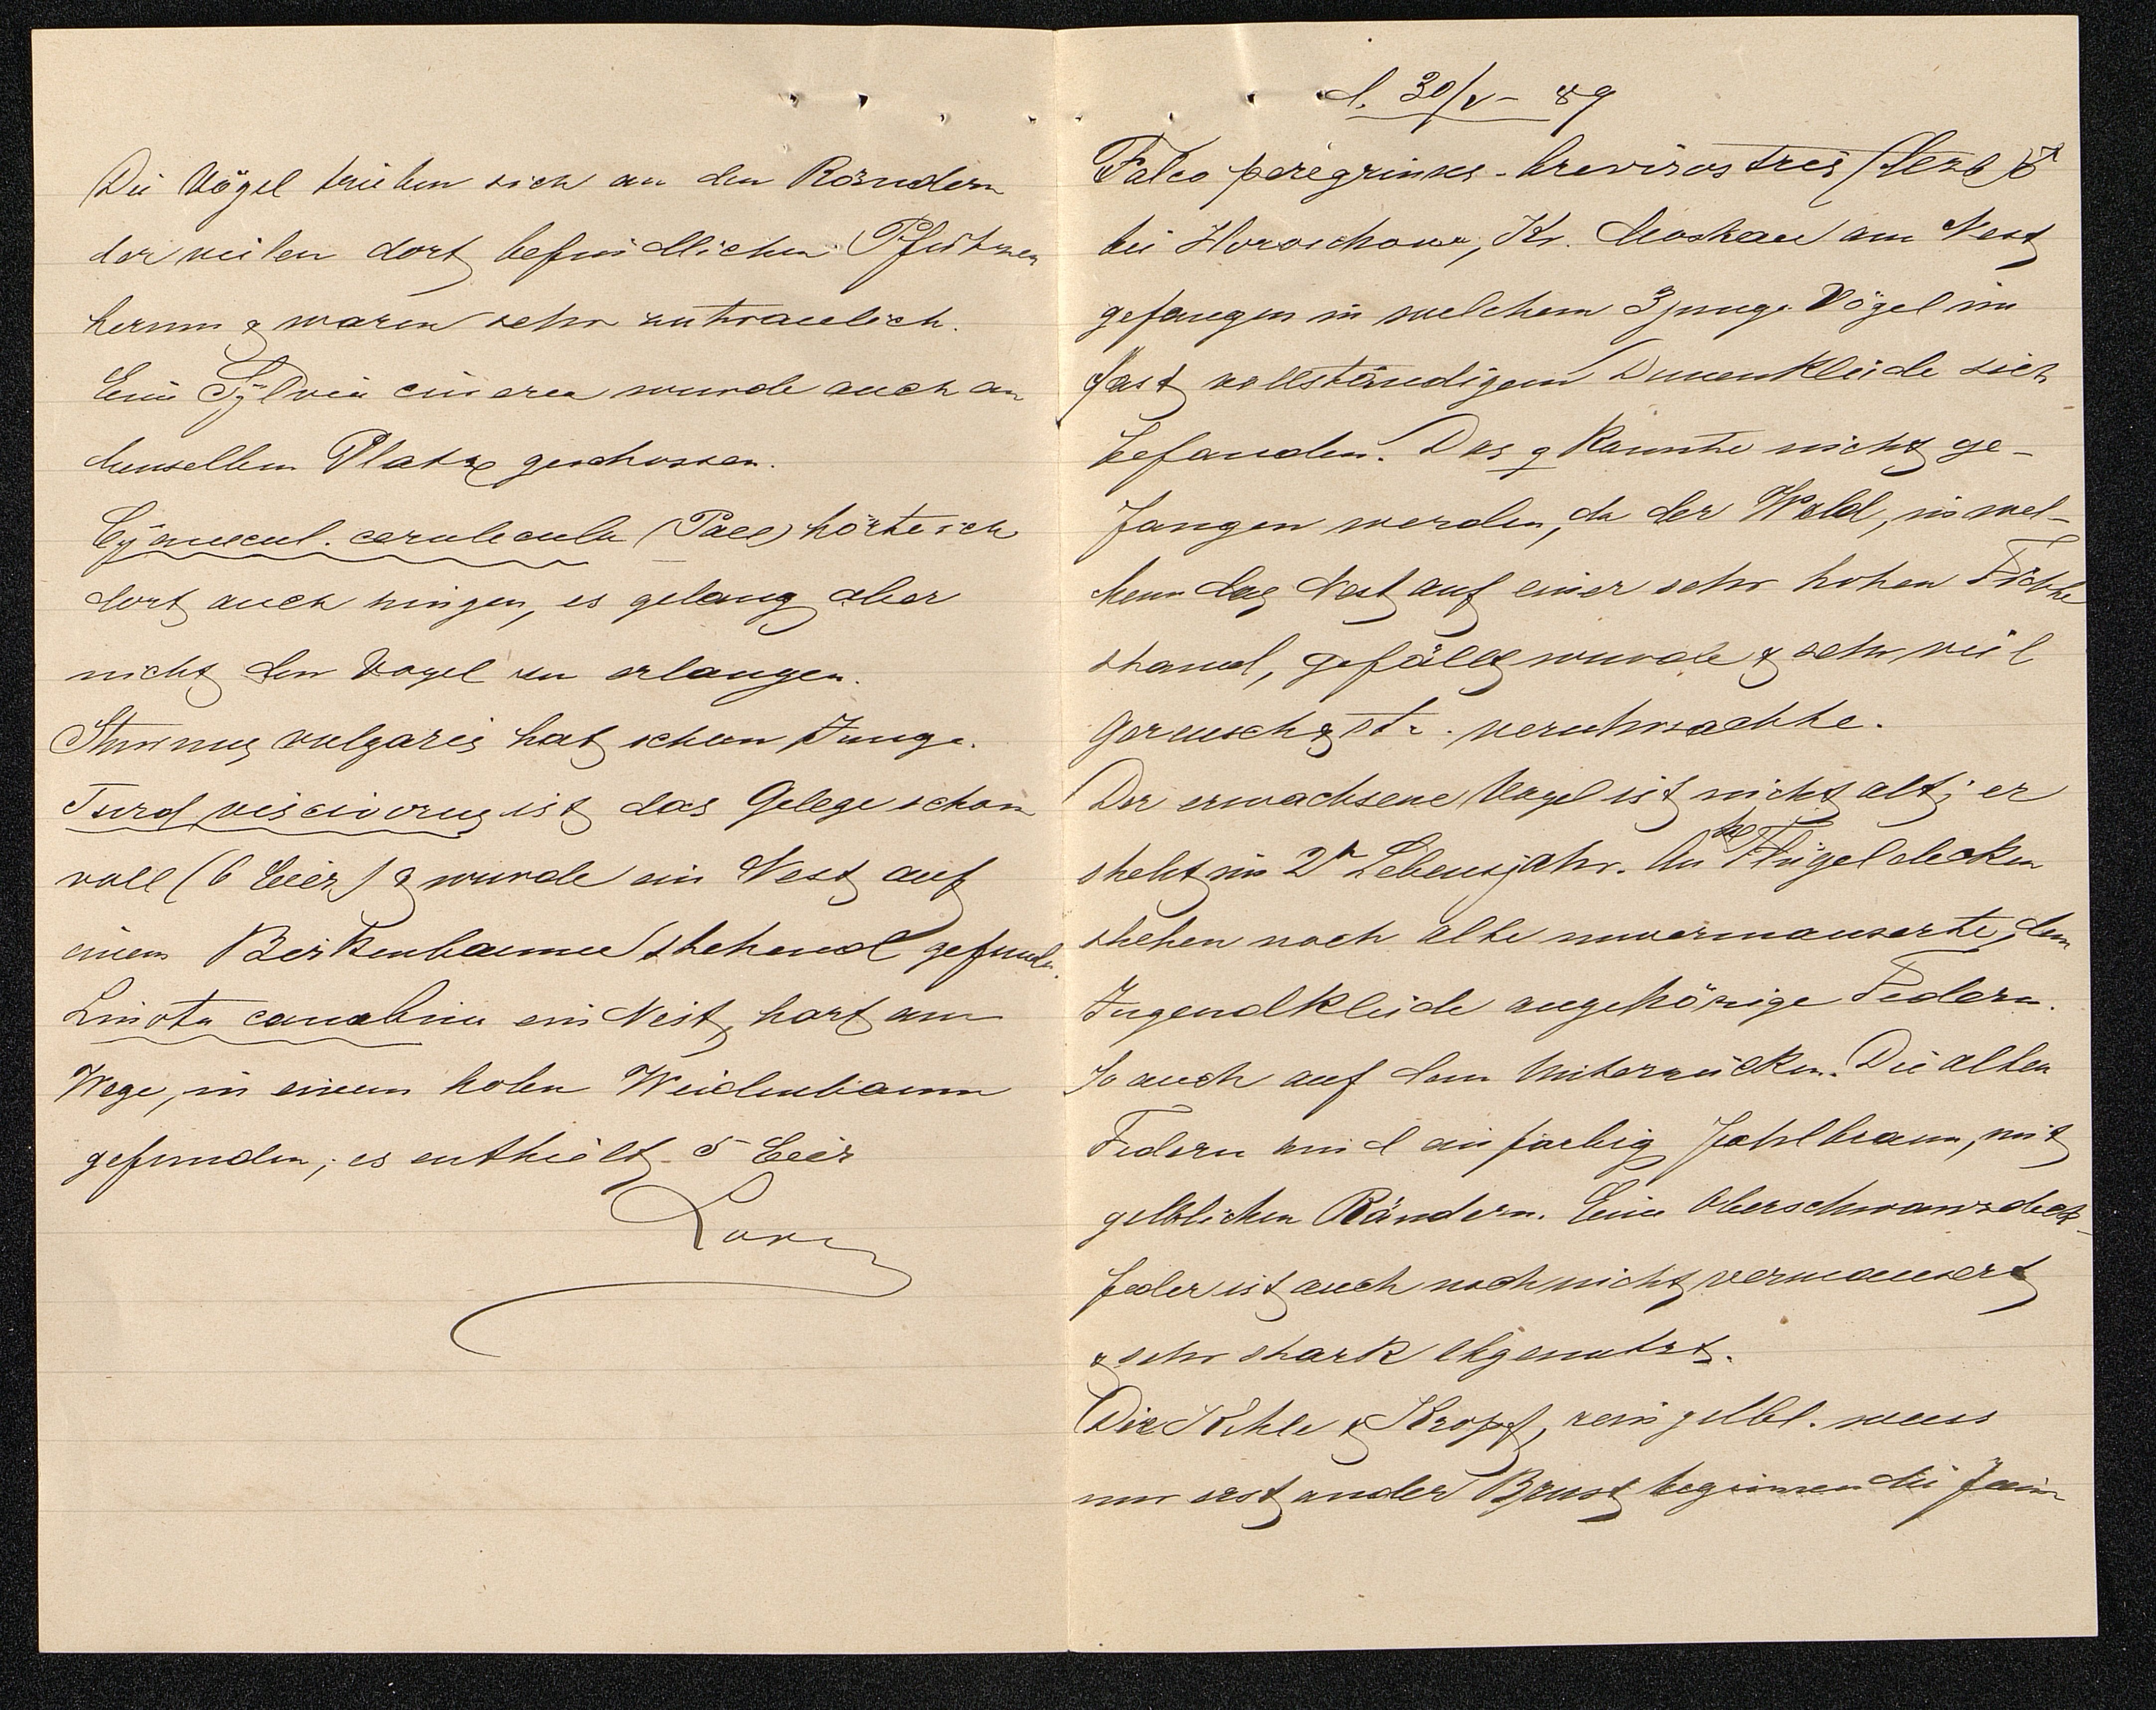 Die Vögel trieben sich an den Rändern
der vielen dort befindlichen Pfützen
herum & waren sehr zutraulich.
Eine Sylvia cinerea wurde auch an
demselben Platze geschossen.
Cyanecul. cærulecula (Pall) hörte ich
dort auch singen, es gelang aber
nicht den Vogel zu erlangen.
Sturnus vulgaris hat schon Junge.
Turd viscivorus ist das Gelege schon
voll (6 Eier) & wurde ein Nest auf
einem Birkenbaume stehend gefunden.
Linota canabina ein Nest, hart am
Wege, in einem holen Weidenbaum
gefunden; es enthielt 5 Eier
Lorenz
d. 30/V - 89
Falco peregrinus-brevirostris (Menzb) ♂
bei Horoschowo, Kr. Moskau am Nest
gefangen in welchem 3 junge Vögel im
fast vollständigem Dunenkleide sich
befanden. Das ♀ kannte nicht ge-
fangen werden, da der Wald, in wel-
chem das Nest auf einer sehr hohen Fichte
stand, gefällt wurde & sehr viel
Gereusch & veruhrsachte.
Der erwachsene Vogel ist nicht alt; er
steht im 2n Lebensjahr. An Flügeldecken
stehen noch alte unvermauserte, dem
Jugendkleide angehörige Federn.
So auch auf dem Unterrücken. Die alten
Federn sind einfarbig fahlbraun, mit
gelblichen Rändern. Eine Oberschwanzdeck-
feder ist auch noch nicht vermausert
& sehr stark abgenutzt.
Die Kehle & Kropf, rein gelbl. weiss
nur erst an der Brust beginnen die fein